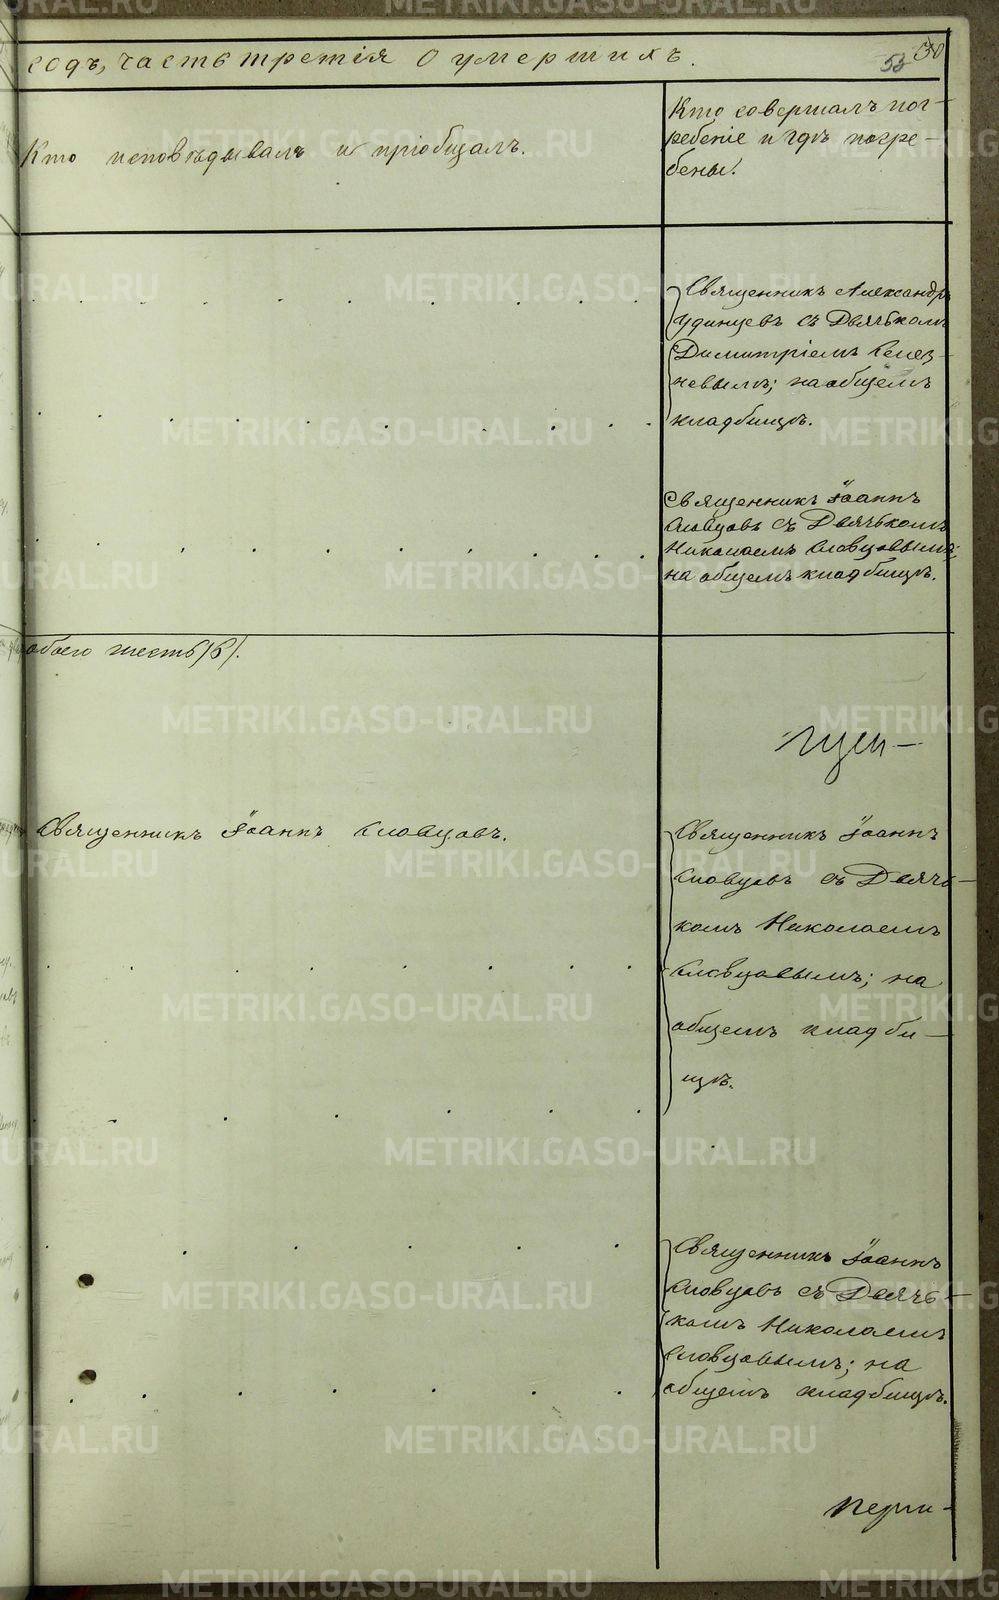 годъ, часть третія о умершихъ.
53 50
Кто исповѣдывалъ и пріобщалъ.
Кто совершалъ пог-
ребеніе и гдѣ погре-
бены.
Священникъ Александръ
Удинцевъ съ Дьячкомъ
Димитріемъ
невымъ; на общемъ
кладбищѣ.
Священникъ Іоаннъ
Словцовъ съ Дьячькомъ
Николаемъ Словцовымъ;
на общемъ кладбищѣ.
обоего шесть /6/.
Священникъ Іоаннъ Словцовъ.
Священникъ Іоаннъ
Словцовъ съ Дьячь-
комъ Николаемъ
Словцовымъ; на
общемъ кладби-
щѣ.
Священникъ Іоаннъ
Словцовъ съ Дьячь-
комъ Николаемъ
Словцовымъ; на
общемъ кладбищѣ.
METRIKI.GASO-URAL.RU